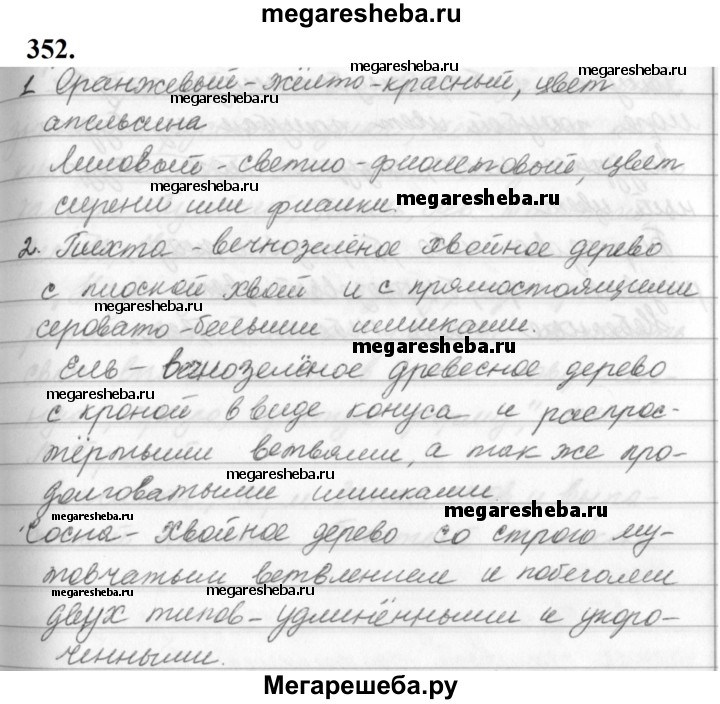 megaresheba.ru
352.
1. Оранжевый - жёлто-красный, цвет
megaresheba.ru
megaresheba.ru
апельсина
megaresheba.ru
Лиловый - светло-фиолетовый, цвет
megaresheba.ru
сирени или фиалки.
megaresheba.ru
2. Пихта - вечнозелёное хвойное дерево
с плоской хвоей и с прямостоящими
megaresheba.ru
серовато-белыми шишками.
megaresheba.ru
Ель - вечнозелёное древесное дерево
с кроной в виде конуса и распрос-
megaresheba.ru
тёртыми ветвями, а так же про-
долговатыми шишками.
megaresheba.ru
megaresheba.ru
Сосна - хвойное дерево со строго му-
megaresheba.ru
товчатым ветвлением и побегами
двух типов - удлинёнными и укоро-
ченными.
Мегарешеба.ру